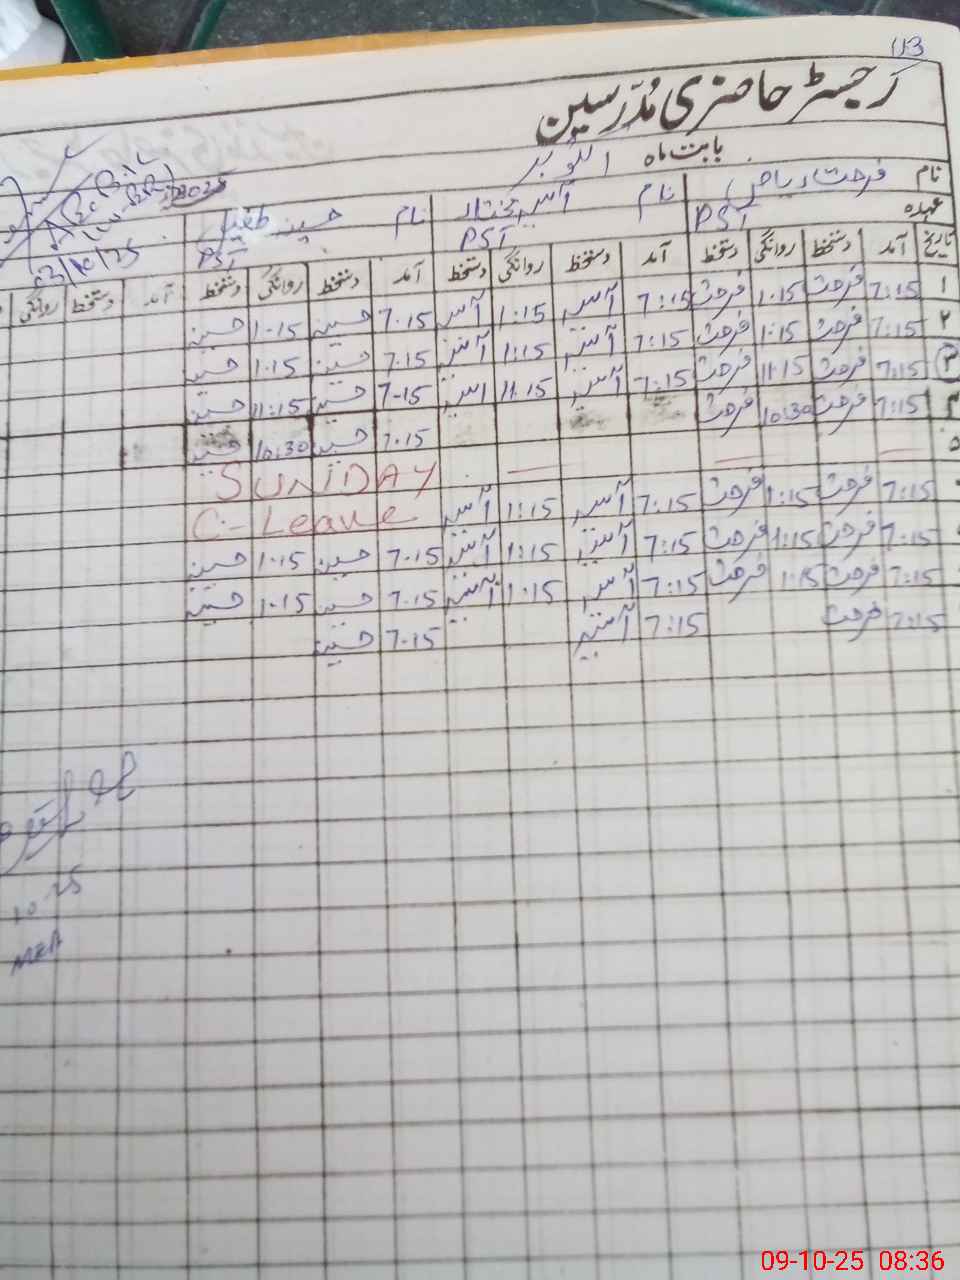 113
رجسٹر حاضری مُدرسین
بابت ماہ اکتوبر
نام فرحت ریاض نام آسیہ مختار نام حسینہ طفیل
عہدہ PST PST PST
03/10/25
تاریخ آمد دستخط روانگی دستخط آمد دستخط روانگی دستخط آمد دستخط روانگی دستخط آمد دستخط روانگی
۱ 7:15 فرحت 1:15 فرحت 7:15 آسیہ 1:15 آسیہ 7.15 حسینہ 1.15 حسینہ
۲ 7:15 فرحت 1:15 فرحت 7:15 آسیہ 1:15 آسیہ 7.15 حسینہ 1.15 حسینہ
۳ 7:15 فرحت 11:15 فرحت 7:15 آسیہ 11:15 آسیہ 7-15 حسینہ 11:15 حسینہ
۴ 7:15 فرحت 10:30 فرحت 7.15 حسینہ 10:30 حسینہ
۵ — — — SUNDAY
7:15 فرحت 1:15 فرحت 7:15 آسیہ 1:15 آسیہ C-Leave
7:15 فرحت 1:15 فرحت 7:15 آسیہ 1:15 آسیہ 7.15 حسینہ 1.15 حسینہ
7:15 فرحت 1:15 فرحت 7:15 آسیہ 1:15 آسیہ 7.15 حسینہ 1.15 حسینہ
7:15 فرحت 7:15 آسیہ 7.15 حسینہ
10-25
MEA
09-10-25 08:36